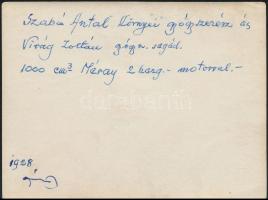 Szabó Antal Környei gyógyszerész és
Virág Zoltán gógy. segéd.
1000 cm³ Méray 2 heng.- motorral.-
1928